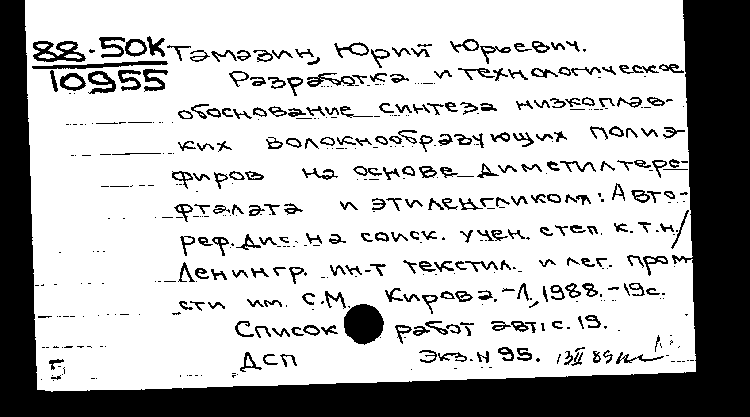 88-50К Тамазин, Юрий Юрьевич.
10955
Разработка и технологическое
обоснование синтеза низкоплав-
ких волокнообразующих полиэ-
фиров на основе диметилтере-
фталата и этиленгликоля: Авто-
реф. дис. на соиск. учен. степ. к.т.н/
Ленингр. ин-т текстил. и лег. пром-
сти им. С.М. Кирова.-Л,1988.-19с.
Список работ авт: с. 19.
5 ДСП Экз. N 95.